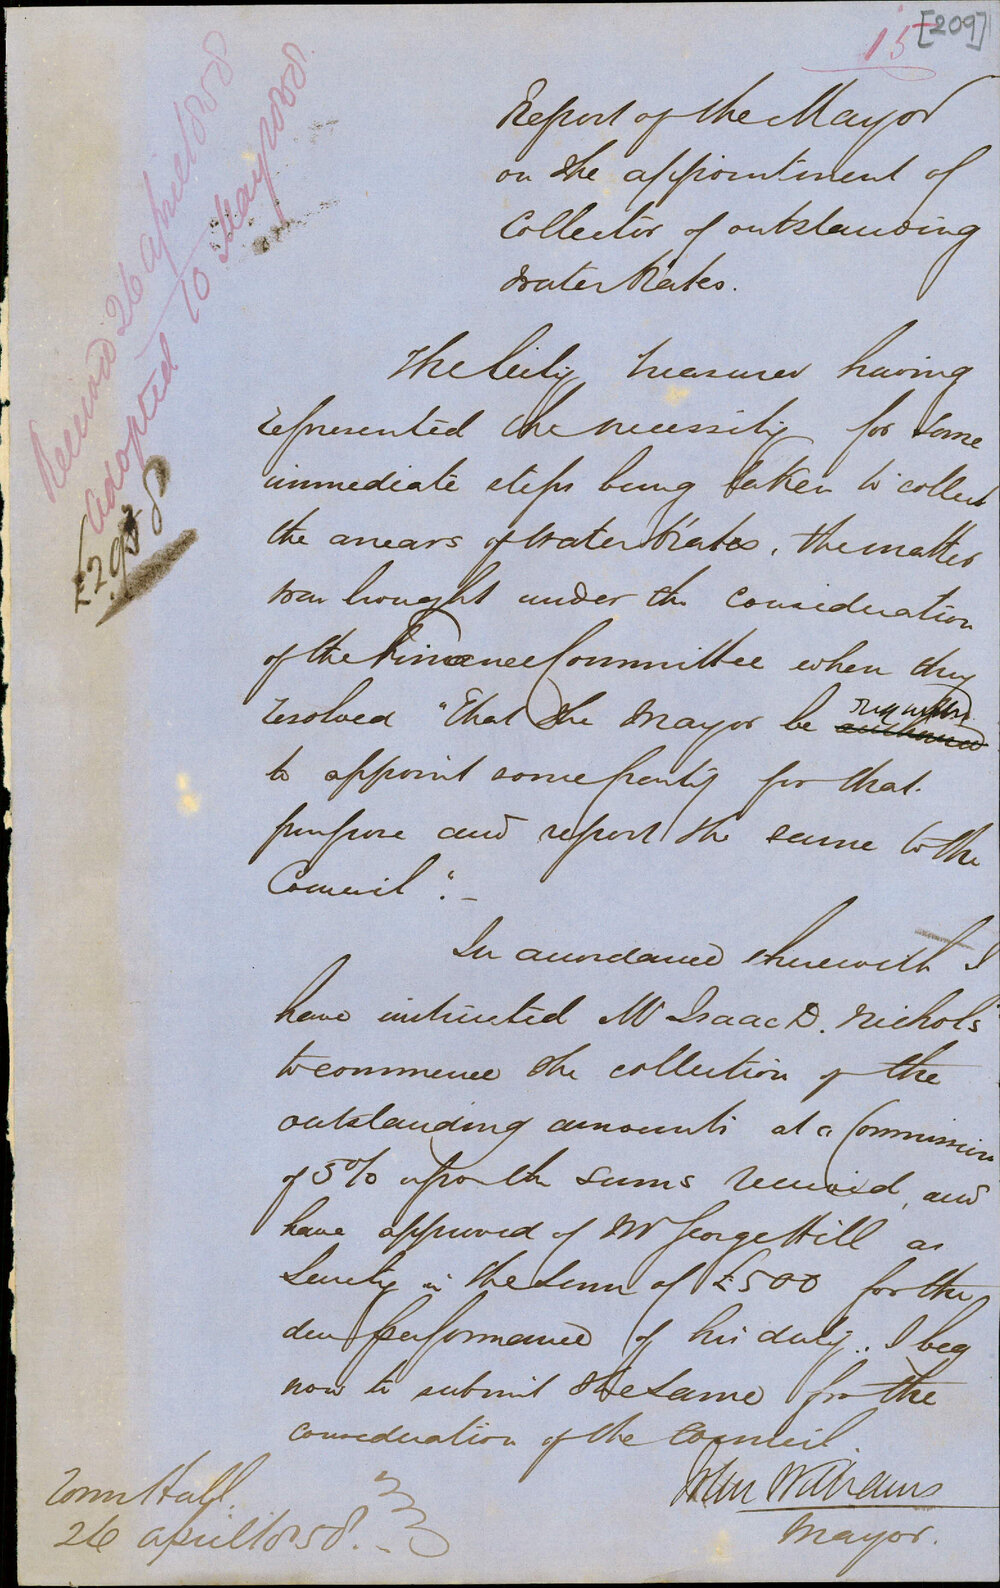 15 [209]
Received 26 April 1858
Adopted 10 May 1858
Report of the Mayor
on the appointment of
Collector of outstanding
Water Rates.
The City Treasurer having
represented the necessity for some
immediate steps being taken to collect
the arrears of Water Rates, the matter
was brought under the consideration
of the Finance Committee when they
resolved "That the Mayor be requested authorised
to appoint some party for that
purpose and report the same to the
Council".
In accordance therewith I
have instructed Mr Isaac D. Nichols
to commence the collection of the
outstanding amounts at a Commission
of 5% upon the sums received, and
have approved of Mr George Hill as
Surety in the sum of £500 for the
due performance of his duty. I beg
now to submit the same for the
consideration of the Council.
John Williams
Mayor.
Town Hall
26 April 1858.